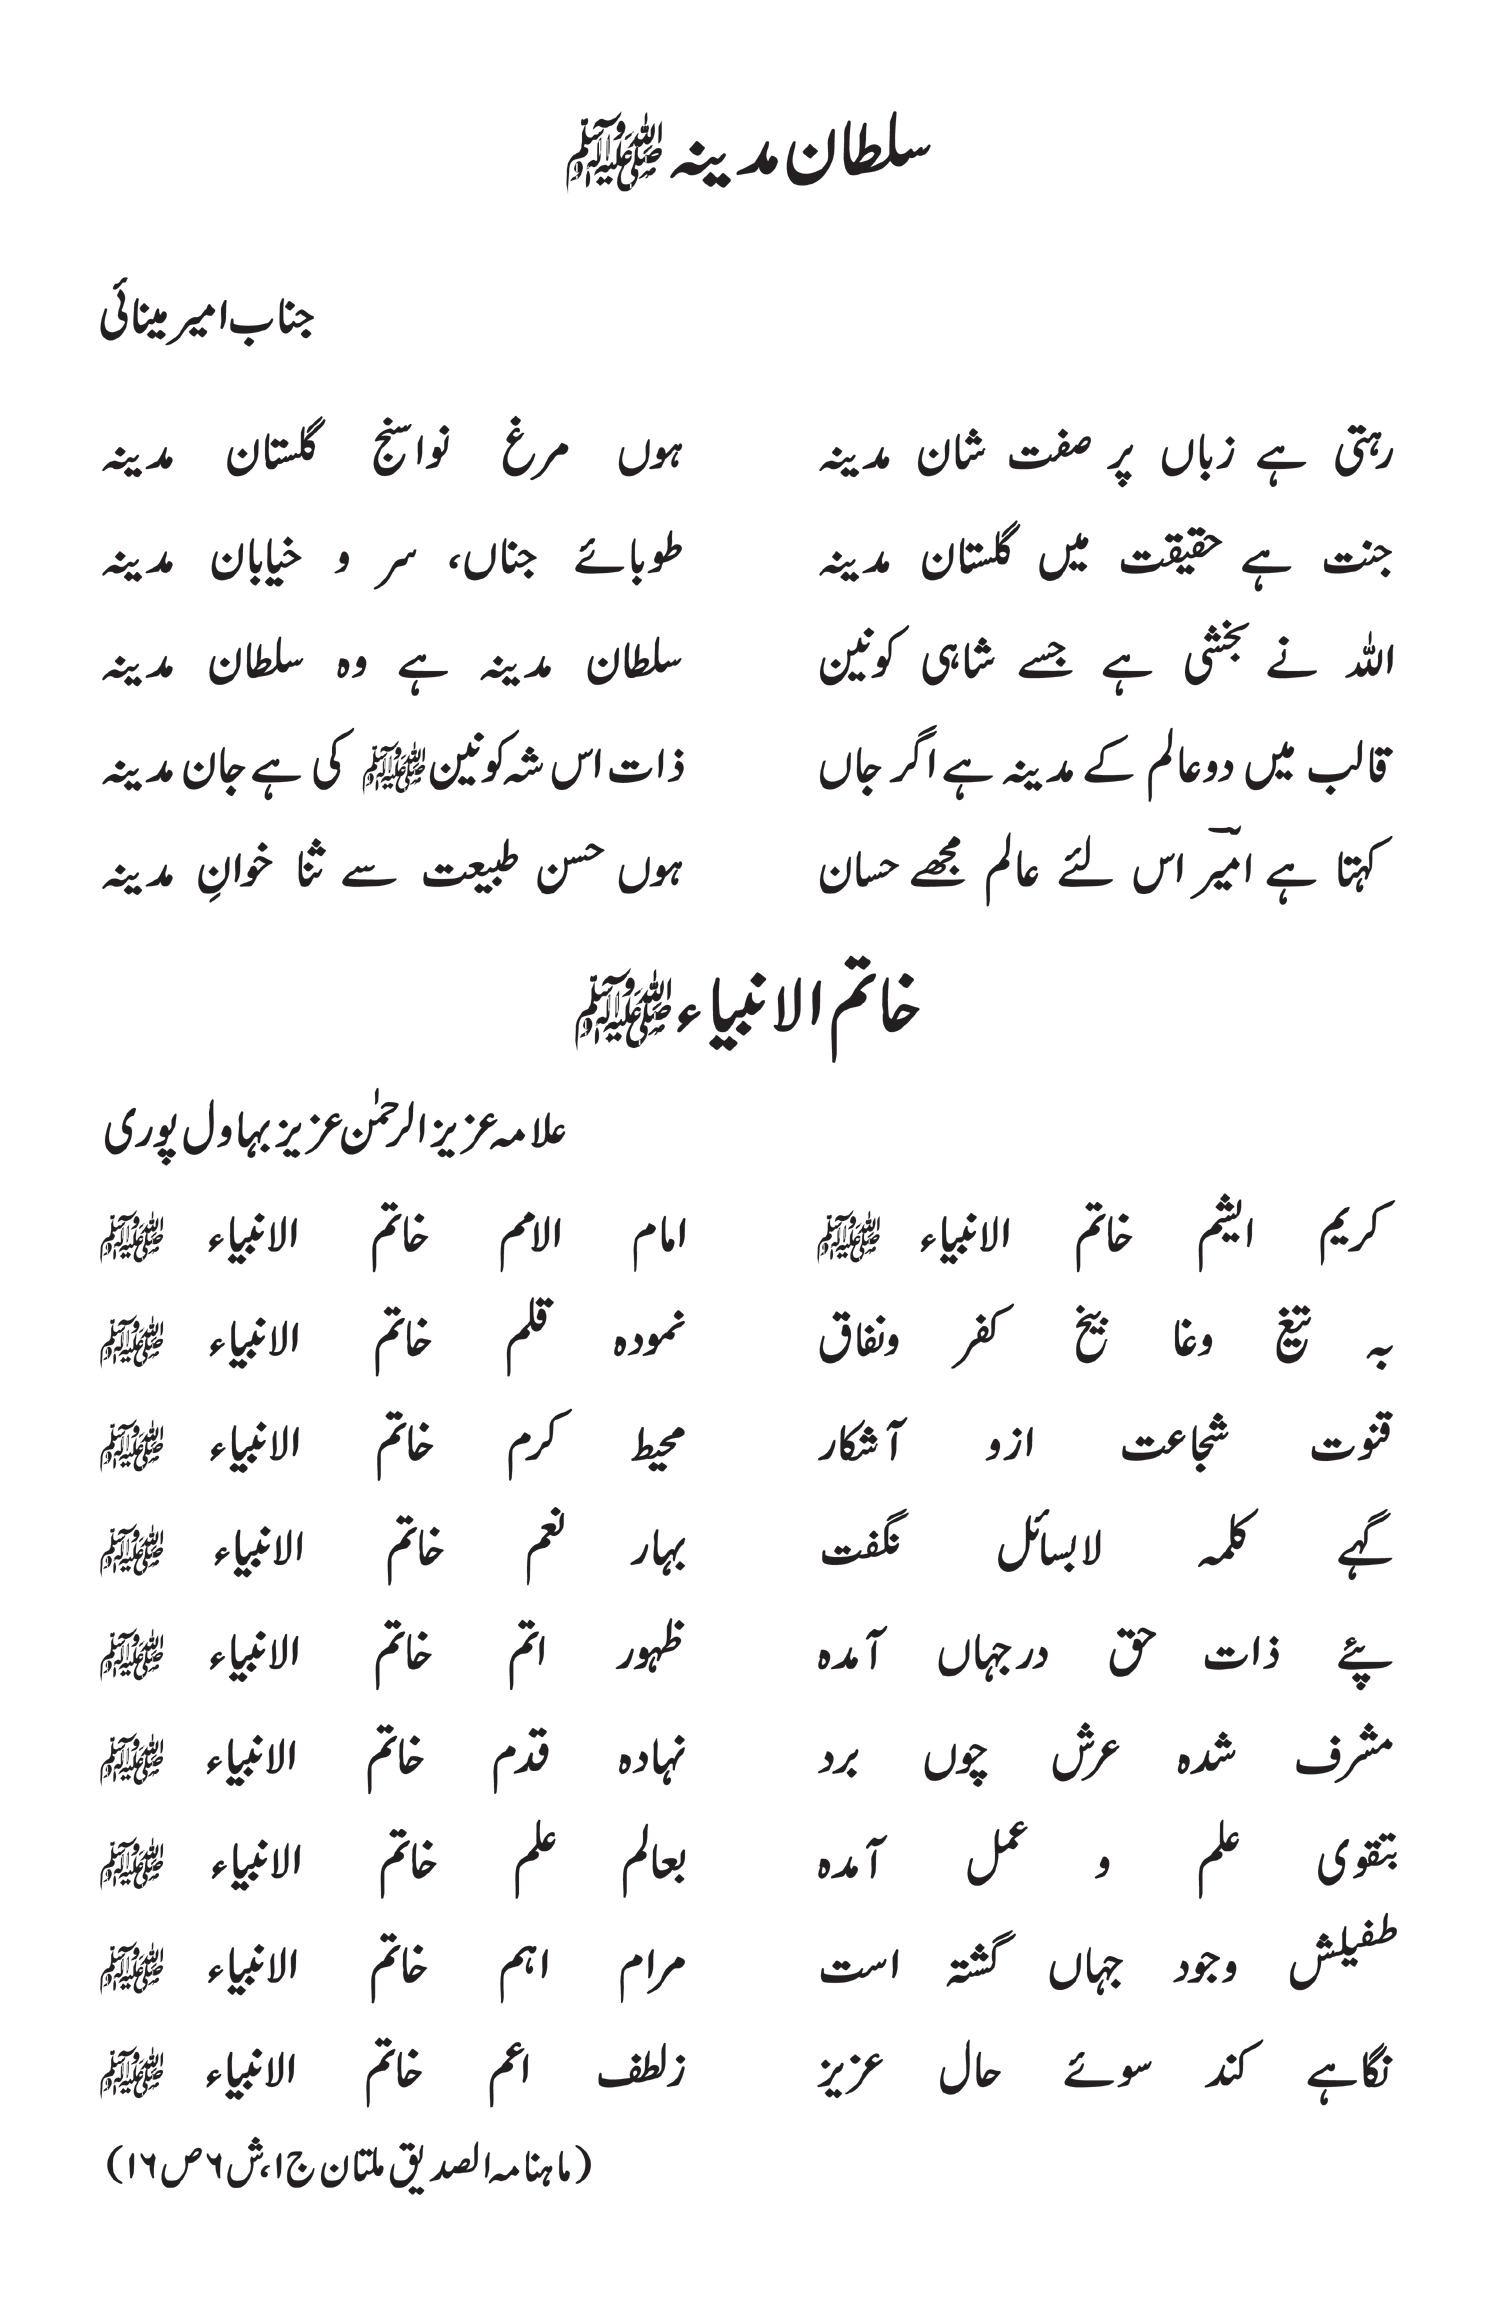 سلطان مدینہ ﷺ
جناب امیر مینائی
رہتی ہے زباں پر صفت شان مدینہ ہوں مرغ نواسنج گلستان مدینہ
جنت ہے حقیقت میں گلستان مدینہ طوبائے جناں، سر و خیابان مدینہ
اللہ نے بخشی ہے جسے شاہی کونین سلطان مدینہ ہے وہ سلطان مدینہ
قالب میں دوعالم کے مدینہ ہے اگر جاں ذات اس شہ کونین ﷺ کی ہے جان مدینہ
کہتا ہے امیرؔ اس لئے عالم مجھے حسان ہوں حسن طبیعت سے ثنا خوانِ مدینہ
خاتم الانبیاء ﷺ
علامہ عزیز الرحمٰن عزیز بہاول پوری
کریم الشیم خاتم الانبیاء ﷺ امام الامم خاتم الانبیاء ﷺ
بہ تیغ وغا بیخ کفر ونفاق نمودہ قلم خاتم الانبیاء ﷺ
قنوت شجاعت ازو آشکار محیط کرم خاتم الانبیاء ﷺ
گہے کلمہ لابسائل نگفت بہار نعم خاتم الانبیاء ﷺ
پئے ذات حق درجہاں آمدہ ظہور اتم خاتم الانبیاء ﷺ
مشرف شدہ عرش چوں برد نہادہ قدم خاتم الانبیاء ﷺ
بتقوی علم و عمل آمدہ بعالم علم خاتم الانبیاء ﷺ
طفیلش وجود جہاں گشتہ است مرام اہم خاتم الانبیاء ﷺ
نگاہے کند سوئے حال عزیز زلطف اعم خاتم الانبیاء ﷺ
(ماہنامہ الصدیق ملتان ج۱، ش۶ ص۱۶)